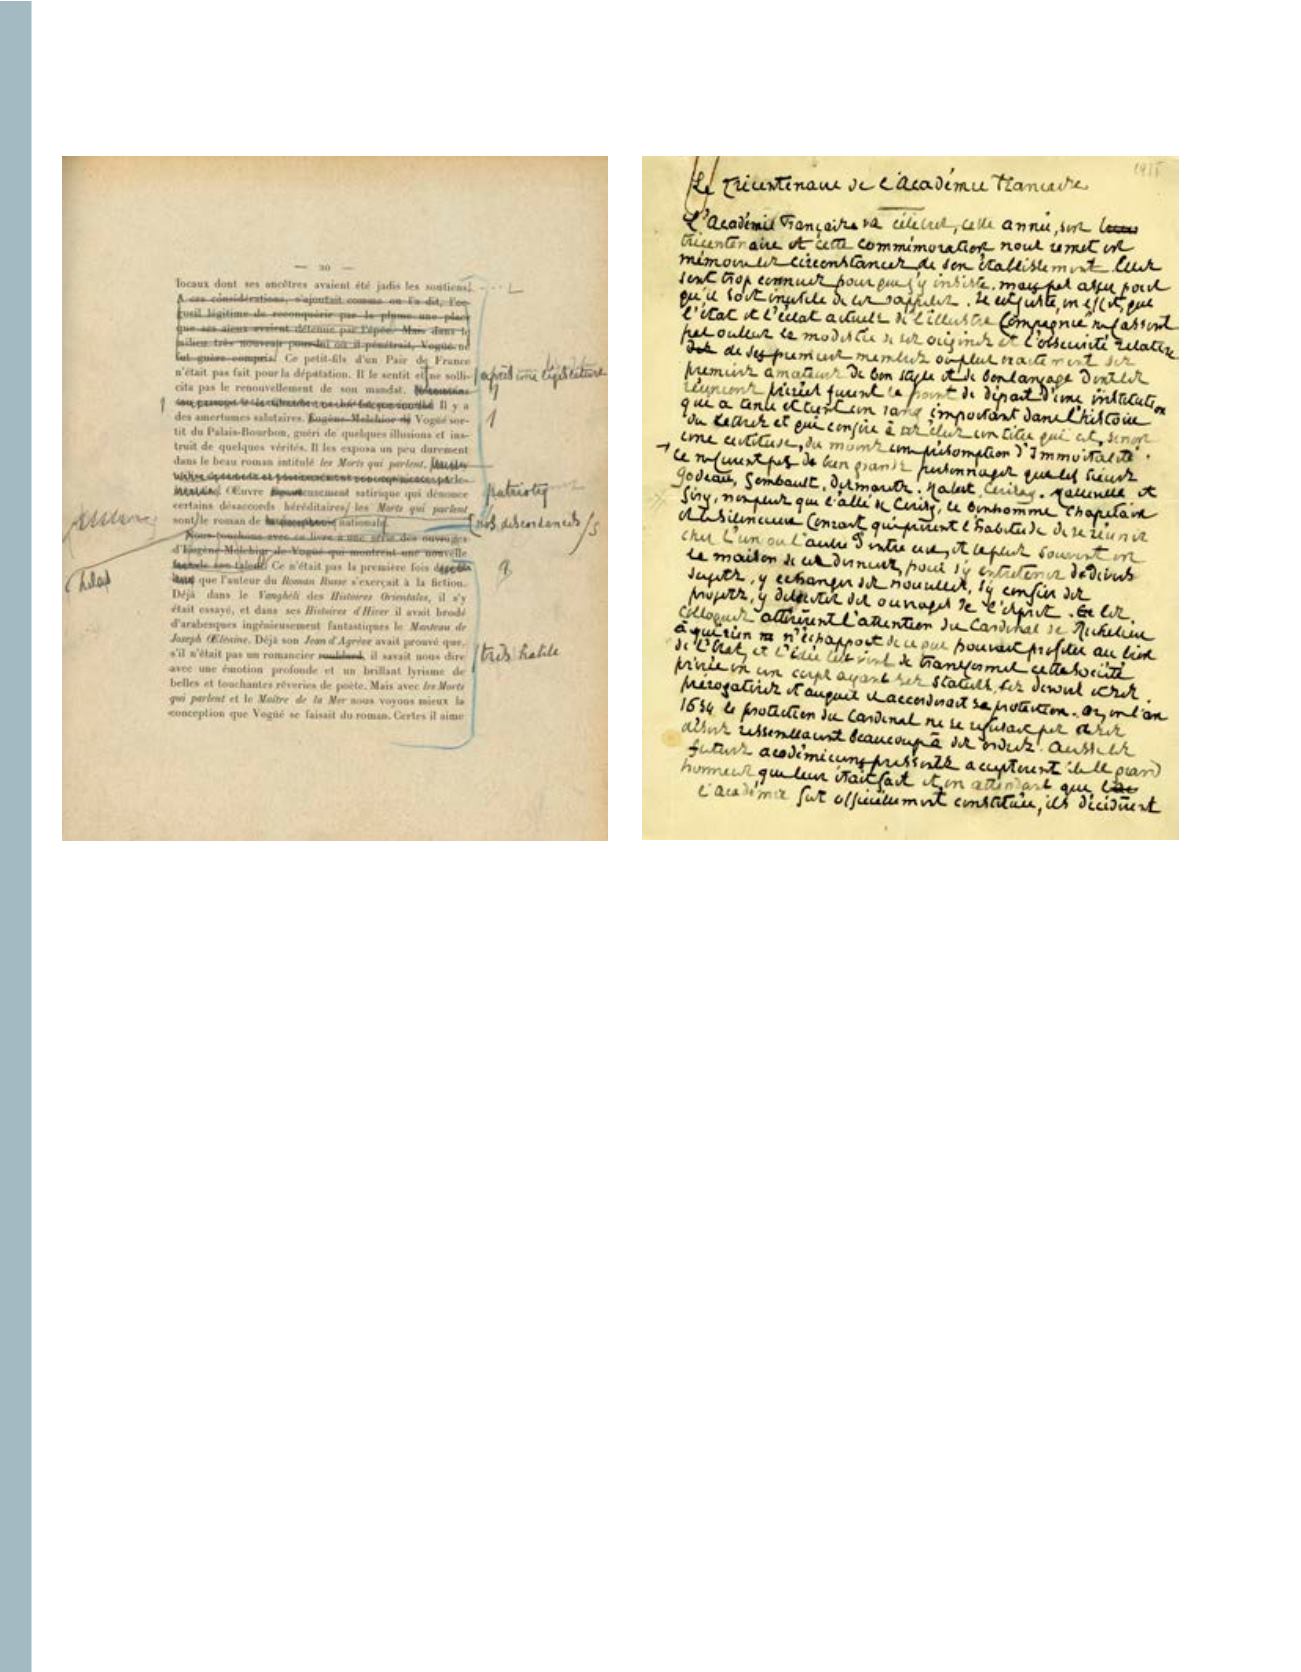 — 20 —
locaux dont ses ancêtres avaient été jadis les soutiens.
A ces considérations, s'ajoutait comme on l'a dit, l'or-
gueil légitime de reconquérir par la plume une place
que ses aïeux avaient détenue par l'épée. Mais dans le
milieu très nouveau pour lui où il pénétrait, Vogüé ne
fut guère compris. Ce petit-fils d'un Pair de France
n'était pas fait pour la députation. Il le sentit et ne solli-
après une législature
cita pas le renouvellement de son mandat.
Il y a
des amertumes salutaires. Eugène-Melchior de Vogüé sor-
tit du Palais-Bourbon, guéri de quelques illusions et ins-
truit de quelques vérités. Il les exposa un peu durement
dans le beau roman intitulé les Morts qui parlent,
Œuvre satirique qui dénonce
certains désaccords héréditaires/ les Morts qui parlent
sont/le roman de nationale
nos discordances
Nous touchons avec ce livre à une série des ouvrages
d'Eugène-Melchior de Vogüé qui montrent une nouvelle
face de son talent. Ce n'était pas la première fois
hélas
que l'auteur du Roman Russe s'exerçait à la fiction.
Déjà dans le Vanghéli des Histoires Orientales, il s'y
était essayé, et dans ses Histoires d'Hiver il avait brodé
d'arabesques ingénieusement fantastiques le Manteau de
Joseph Olénine. Déjà son Jean d'Agrève avait prouvé que,
s'il n'était pas un romancier roublard, il savait nous dire
très habile
avec une émotion profonde et un brillant lyrisme de
belles et touchantes rêveries de poète. Mais avec les Morts
qui parlent et le Maître de la Mer nous voyons mieux la
conception que Vogüé se faisait du roman. Certes il aime
1935
Le Tricentenaire de l'Académie Française
L'Académie Française va célébrer, cette année, son
tricentenaire et cette commémoration nous remet en
mémoire les circonstances de son établissement. Elles
sont trop connues pour que j'y insiste, mais pas assez pour
qu'il soit inutile de les rappeler. Il est juste, en effet, que
l'état et l'éclat actuels de l'illustre Compagnie ne fassent
pas oublier la modestie de ses origines et l'obscurité relative
de ses premiers membres ou plus exactement des
premiers amateurs de bon style et de bon langage dont les
réunions privées furent le point de départ d'une institution
qui a tenu et tient un rang important dans l'histoire
des Lettres et qui confère à ses élus un titre qui est, sinon
une certitude, du moins une présomption d'Immortalité.
Ce ne furent pas de bien grands personnages que les sieurs
Godeau, Gombault, Desmarets, Habert, Cerisay, Malleville et
Giry, non plus que l'abbé de Cerisy, le bonhomme Chapelain
et le silencieux Conrart qui prirent l'habitude de se réunir
chez l'un ou l'autre d'entre eux, et le plus souvent en
la maison de ce dernier, pour s'y entretenir de divers
sujets, y échanger des nouvelles, s'y confier des
projets, y discuter des ouvrages de l'esprit. Ces
colloques attirèrent l'attention du Cardinal de Richelieu
à qui rien n'échappait de ce qui pouvait profiter au bien
de l'État, et l'idée lui vint de transformer cette société
privée en un corps ayant ses statuts, ses devoirs et ses
prérogatives et auquel il accorderait sa protection. Or, en l'an
1634 la protection du Cardinal ne se refusait pas et ses
désirs ressemblaient beaucoup à des ordres. Aussi les
futurs académiciens pressentis acceptèrent-ils le grand
honneur que leur était fait et en attendant que
l'Académie fut officiellement constituée, ils décidèrent